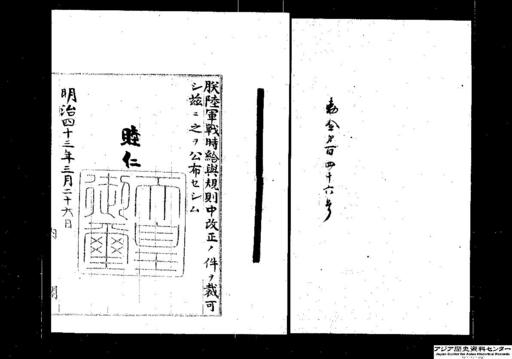 勅令第百四十六号
朕陸軍戰時給與規則中改正ノ件ヲ裁可
シ茲ニ之ヲ公布セシム
睦仁
天皇
御璽
明治四十三年三月二十六日
内閣
アジア歴史資料センター
Japan Center for Asian Historical Records